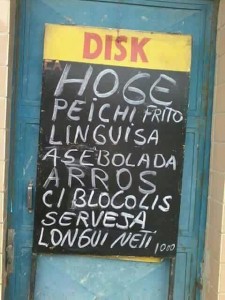 DISK
HOGE
PEICHI FRITO
LINGUISA
ASEBOLADA
ARROS
CI BLOCOLIS
SERVESA
LONGUI NETI 1000